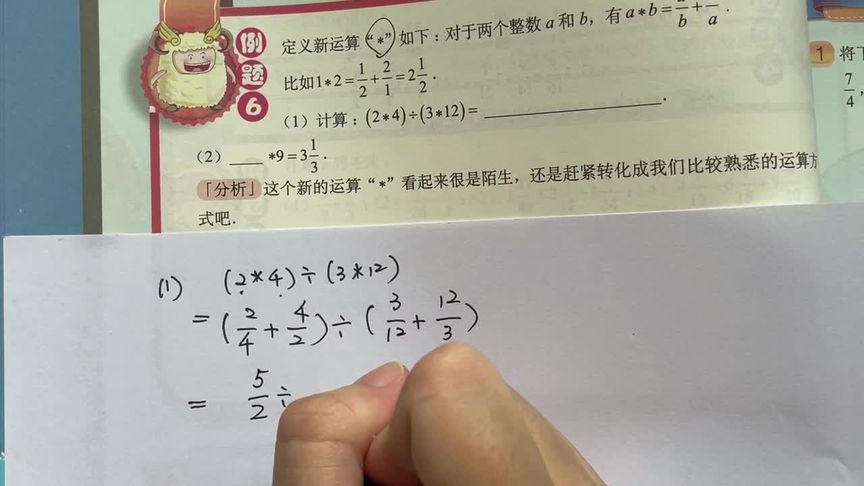 例题6
定义新运算“*”如下：对于两个整数a和b，有a*b=a/b+b/a．
比如1*2=1/2+2/1=2 1/2．
（1）计算：(2*4)÷(3*12)=____________．
（2）____*9=3 1/3．
「分析」这个新的运算“*”看起来很是陌生，还是赶紧转化成我们比较熟悉的运算
式吧．
1 将
7/4，
(1) (2*4)÷(3*12)
=(2/4+4/2)÷(3/12+12/3)
= 5/2÷